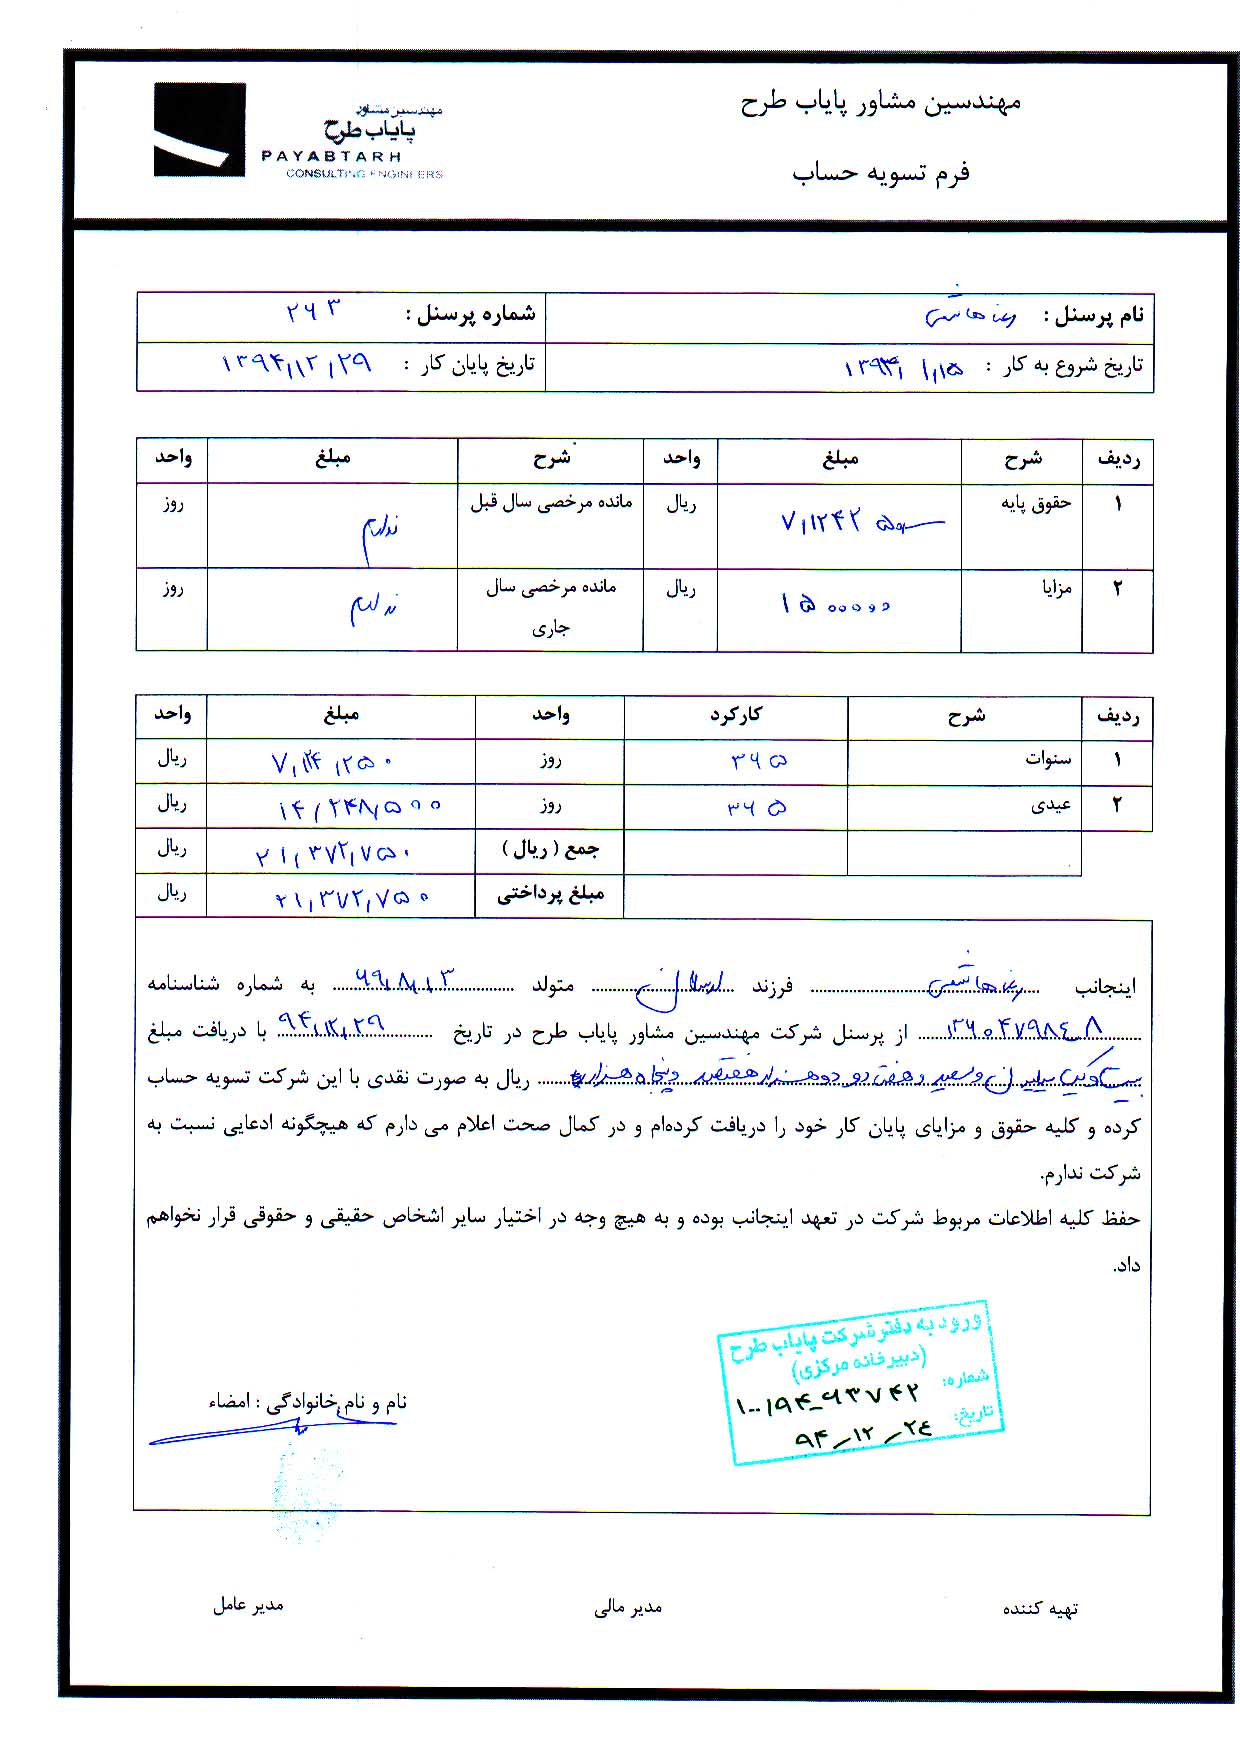 مهندسین مشاور پایاب طرح
فرم تسویه حساب
مهندسین مشاور
پایاب طرح
PAYABTARH
CONSULTING ENGINEERS
نام پرسنل : رضا هاشمی شماره پرسنل : ۲۶۳
تاریخ شروع به کار : ۱۳۹۴/۱/۱۵ تاریخ پایان کار : ۱۳۹۴/۱۲/۲۹
ردیف شرح مبلغ واحد شرح مبلغ واحد
۱ حقوق پایه ۷,۱۲۴۲۵۰ ریال مانده مرخصی سال قبل ندارم روز
۲ مزایا ۱۵۰۰۰۰۰ ریال مانده مرخصی سال جاری ندارم روز
ردیف شرح کارکرد واحد مبلغ واحد
۱ سنوات ۳۶۵ روز ۷,۱۲۴,۲۵۰ ریال
۲ عیدی ۳۶۵ روز ۱۴,۲۴۸,۵۰۰ ریال
جمع ( ریال ) ۲۱,۳۷۲,۷۵۰ ریال
مبلغ پرداختی ۲۱,۳۷۲,۷۵۰ ریال
اینجانب رضا هاشمی فرزند ارسلان متولد ۶۹/۸/۱۳ به شماره شناسنامه
۱۳۶۰۴۷۹۸۴۰۸ از پرسنل شرکت مهندسین مشاور پایاب طرح در تاریخ ۹۴/۱۲/۲۹ با دریافت مبلغ
بیست و یک میلیون و سیصد و هفتاد و دو هزار هفتصد و پنجاه ریال به صورت نقدی با این شرکت تسویه حساب
کرده و کلیه حقوق و مزایای پایان کار خود را دریافت کرده‌ام و در کمال صحت اعلام می دارم که هیچگونه ادعایی نسبت به
شرکت ندارم.
حفظ کلیه اطلاعات مربوط شرکت در تعهد اینجانب بوده و به هیچ وجه در اختیار سایر اشخاص حقیقی و حقوقی قرار نخواهم
داد.
ورود به دفتر شرکت پایاب طرح
(دبیرخانه مرکزی)
شماره: ۱۰۰/۹۴-۹۳۷۴۲
تاریخ: ۹۴/۱۲/۲۴
نام و نام خانوادگی : امضاء
تهیه کننده مدیر مالی مدیر عامل